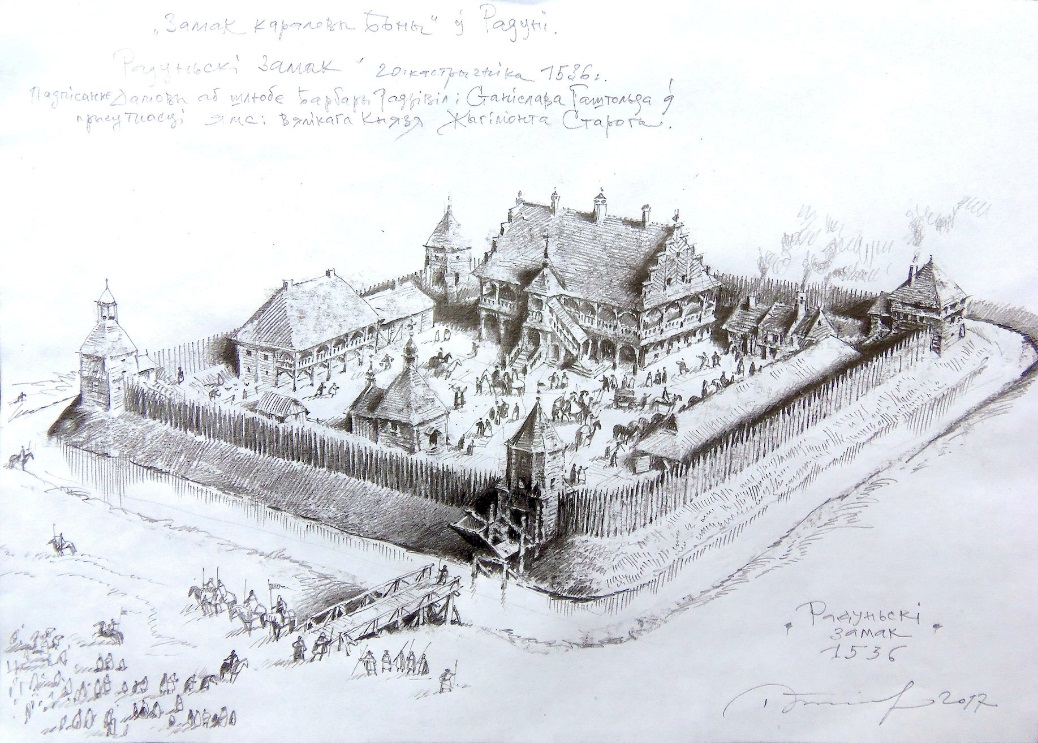 „Замак каралевы Боны" ў Радуні.
Радуньскі замак 20 кастрычніка 1536 г.
Падпісанне дамовы аб шлюбе Барбары Радзівіл і Станіслава Гаштольда ў
прысутнасці вялікага князя Жыгімонта Старога.
Радуньскі
замак
1536
2017